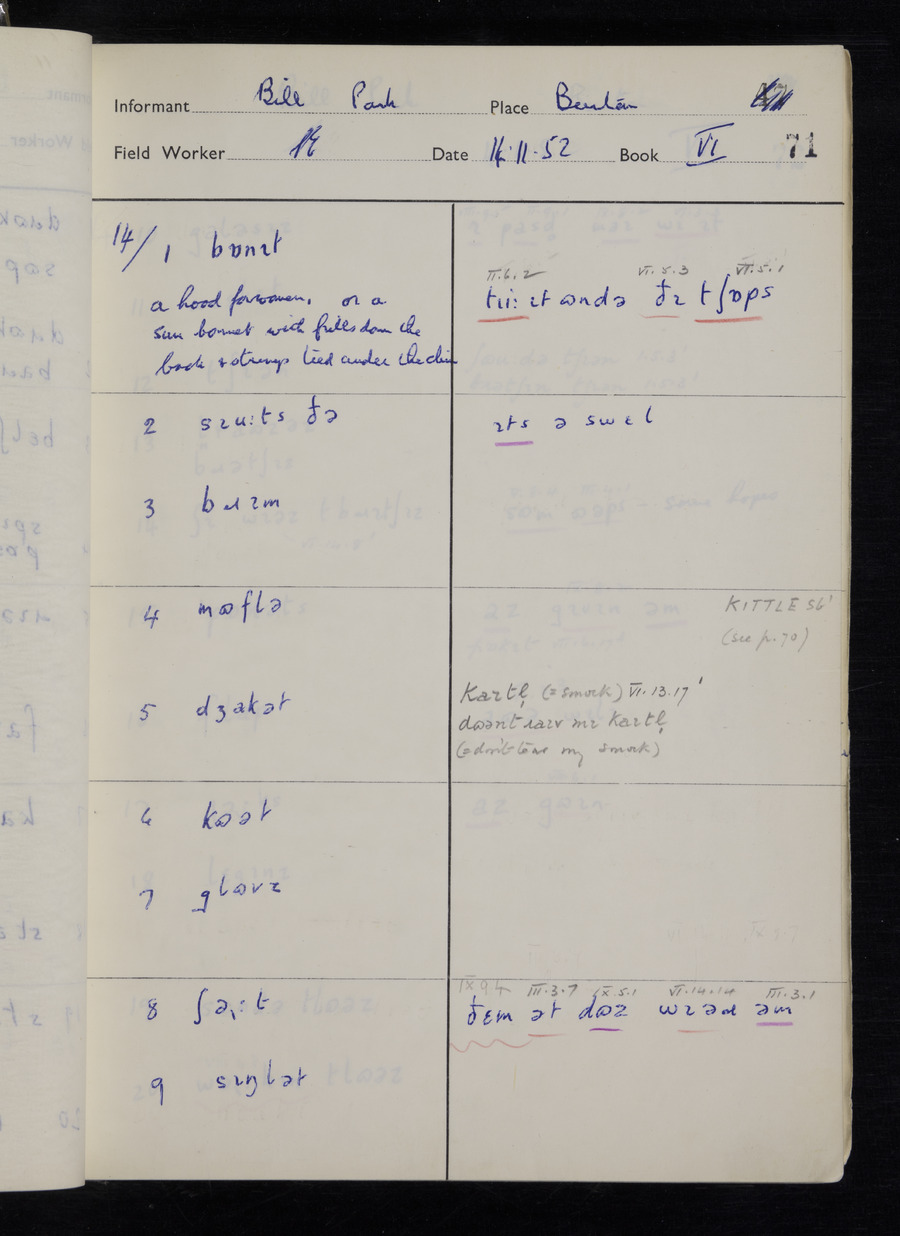 Informant Bill Park Place
Field Worker Date 14.11.52 Book VI 71
14/ 1 bɒnɪt
a hood for women, or a
sun bonnet with frills down the
back & strings tied under the chin
II.6.2 VI.5.3 VI.5.1
ɪt ɷndə ðɪ tʃɒps
2 ðə
ɪts ə swɛl
3
4 mɷflə
KITTLE SG'
(see p.70)
5 dʒakət
(= smock) VI.13.17'
(= don't tear my smock)
6 kɷət
7 glɷvz
8
IX.9.4 III.3.7 IX.5.1 VI.14.14 III.3.1
ðɛm ət dɷz wɪəɹ əm
9 sɪŋlət